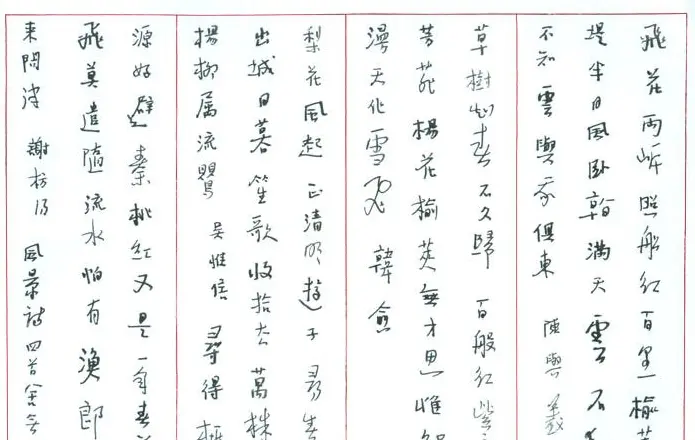 飛花兩岸照船紅百里榆
堤半日風卧看滿天雲不
不知雲與我俱東 陳與義
草樹知春不久歸 百般紅紫
芳菲楊花榆莢無才思惟解
漫天化雪飛 韓愈
梨花風起正清明遊子尋春
出城日暮笙歌收拾去萬株
楊柳属流鶯 吳惟信 尋得桃
源好避秦桃紅又是一年春
飛莫遣隨流水怕有漁郎
来問津 謝枋得 風景詩四首